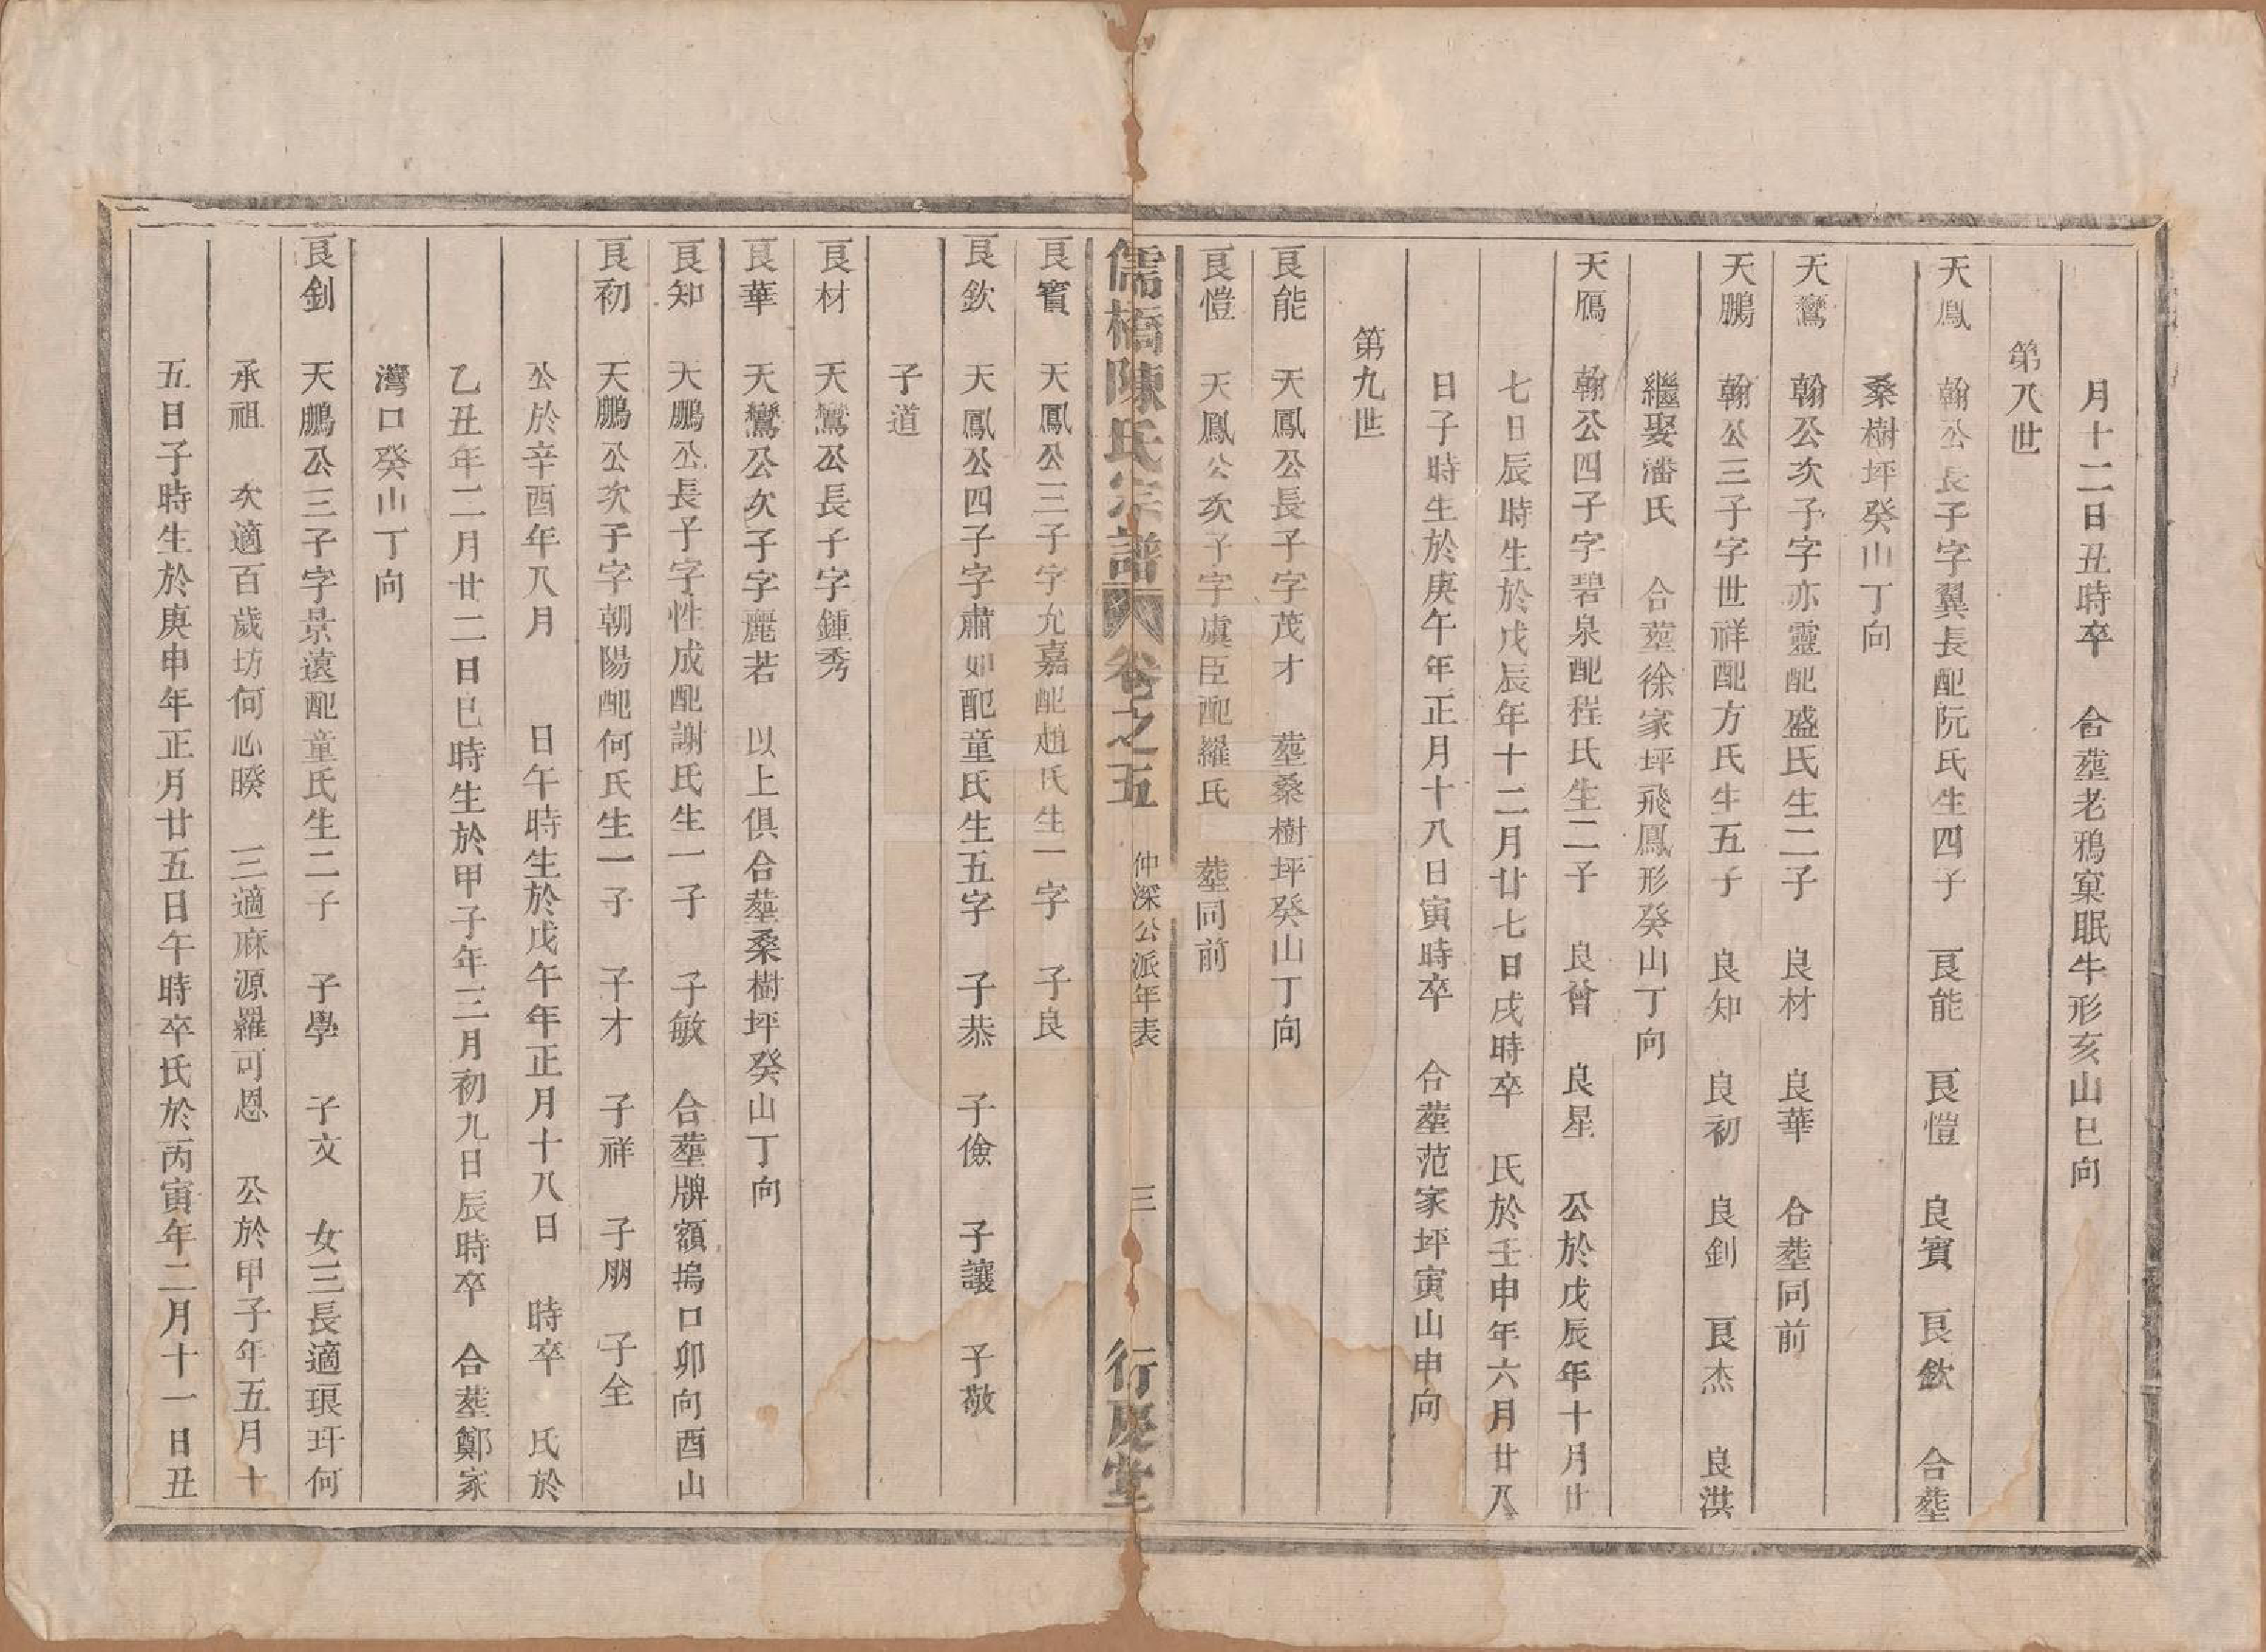 月十二日丑時卒　合塟老鴉窠眠牛形亥山巳向
第八世
天鳳　翰公長子字翼長配阮氏生四子　良能　良愷　良賓　良欽　合塟
桑樹坪癸山丁向
天鸞　翰公次子字亦靈配盛氏生二子　良材　良華　合塟同前
天鵬　翰公三子字世祥配方氏生五子　良知　良初　良釗　良杰　良洪
繼娶潘氏　合塟徐家坪飛鳳形癸山丁向
天鴈　翰公四子字碧泉配程氏生二子　良曾　良星　公於戊辰年十月廿
七日辰時生於戊辰年十二月廿七日戌時卒　氏於壬申年六月廿八
日子時生於庚午年正月十八日寅時卒　合塟范家坪寅山申向
第九世
良能　天鳳公長子字茂才　塟桑樹坪癸山丁向
良愷　天鳳公次子字虞臣配羅氏　塟同前
儒橋陳氏宗譜　卷之五　仲深公派年表　三　行慶堂
良賓　天鳳公三子字允嘉配趙氏生一字　子良
良欽　天鳳公四子字肅如配童氏生五字　子恭　子儉　子讓　子敬
子道
良材　天鸞公長子字鍾秀
良華　天鸞公次子字麗若　以上俱合塟桑樹坪癸山丁向
良知　天鵬公長子字性成配謝氏生一子　子敏　合塟牌額塢口卯向酉山
良初　天鵬公次子字朝陽配何氏生一子　子才　子祥　子朋　子全
公於辛酉年八月　日午時生於戊午年正月十八日　時卒　氏於
乙丑年二月廿二日巳時生於甲子年三月初九日辰時卒　合塟鄭家
灣口癸山丁向
良釗　天鵬公三子字景遠配童氏生二子　子學　子文　女三長適琅玕何
承祖　次適百歲坊何心暌　三適麻源羅可恩　公於甲子年五月十
五日子時生於庚申年正月廿五日午時卒氏於丙寅年二月十一日丑